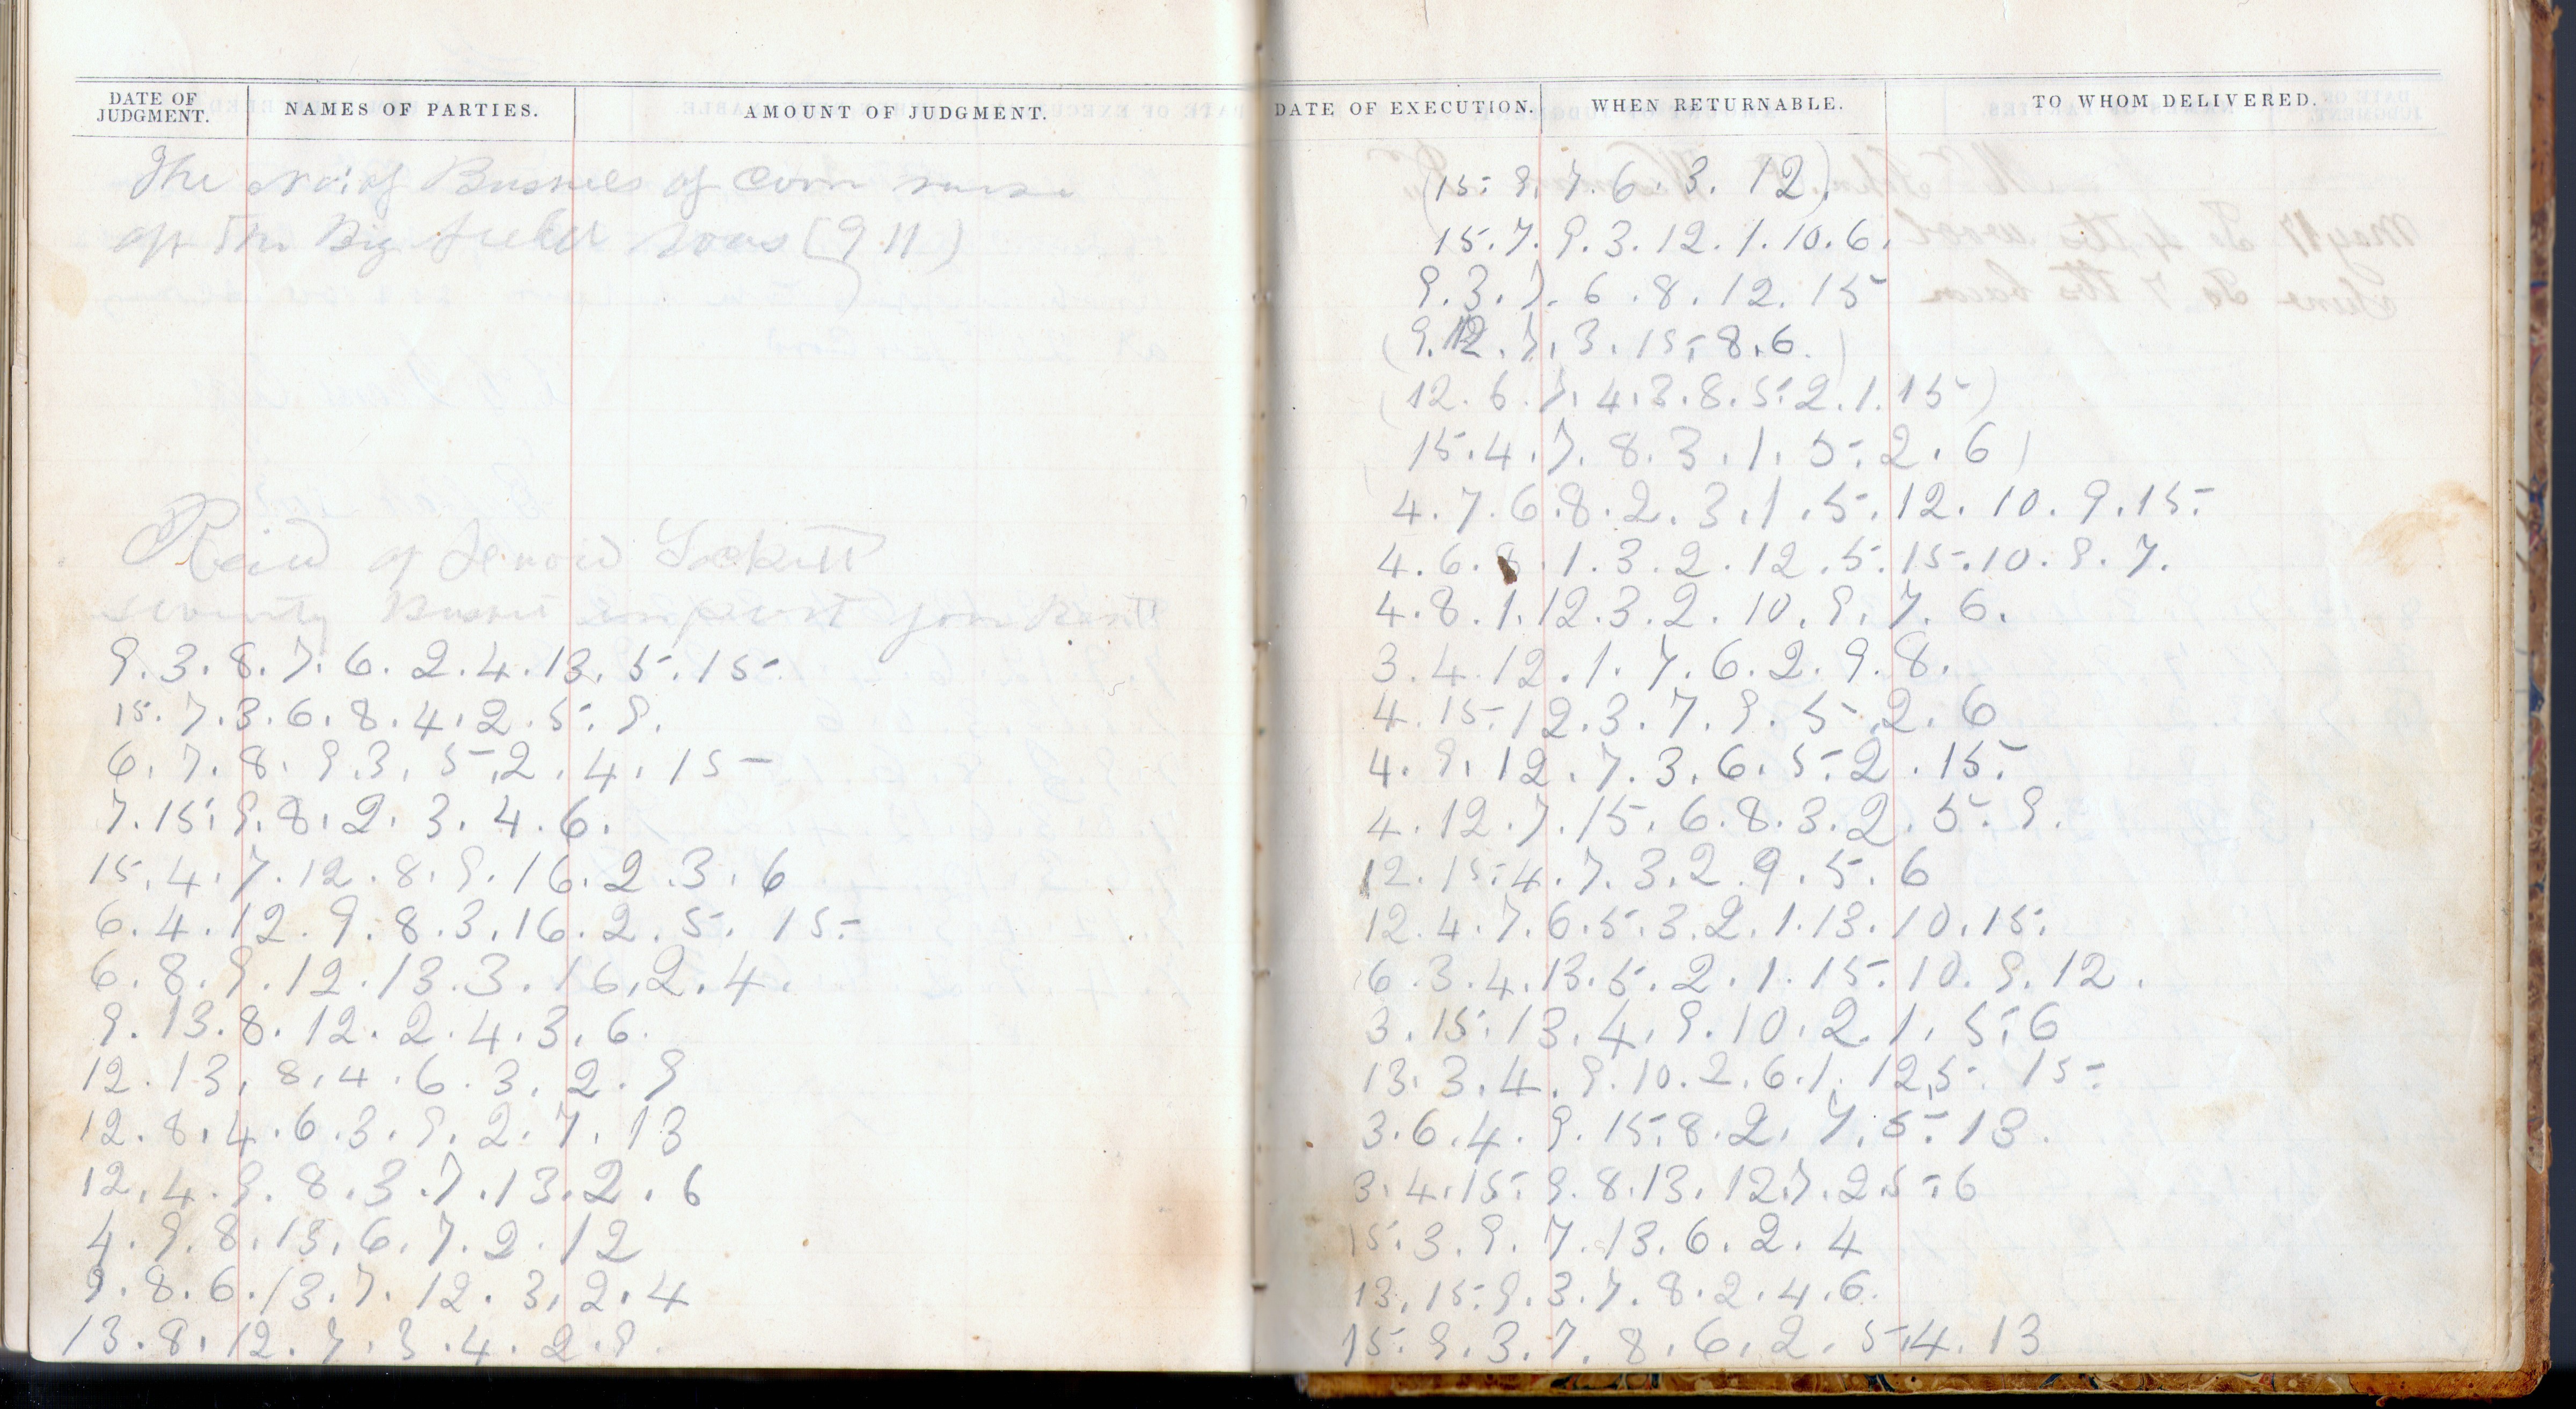 DATE OF JUDGMENT. NAMES OF PARTIES. AMOUNT OF JUDGMENT.
The no. of Bushels of Corn
of The Big field was (911)
of Lockitt
Bushel
9.3.8.7.6.2.4.13.5.15.
15.7.3.6.8.4.2.5.9.
6.7.8.9.3.5.2.4.15
7.15.9.8.2.3.4.6.
15.4.7.12.8.9.16.2.3.6
6.4.12.9.8.3.16.2.5.15.
6.8.9.12.13.3.16.2.4.
9.13.8.12.2.4.3.6.
12.13.8.4.6.3.2.9
12.8.4.6.3.9.2.7.13
12.4.9.8.3.7.13.2.6
4.9.8.13.6.7.2.12
9.8.6.13.7.12.3.2.4
13.8.12.7.3.4.2.9.
DATE OF EXECUTION. WHEN RETURNABLE. TO WHOM DELIVERED.
(15.9.7.6.3.12).
15.7.9.3.12.1.10.6.
9.3.7.6.8.12.15
(9.12.7.3.15.8.6.)
(12.6.7.4.3.8.5.2.1.15)
15.4.7.8.3.1.5.2.6)
4.7.6.8.2.3.1.5.12.10.9.15.
4.6.8.1.3.2.12.5.15.10.9.7.
4.8.1.12.3.2.10.9.7.6.
3.4.12.1.7.6.2.9.8.
4.15.12.3.7.9.5.2.6
4.9.12.7.3.6.5.2.15.
4.12.7.15.6.8.3.2.5.9.
12.15.4.7.3.2.9.5.6
12.4.7.6.5.3.2.1.13.10.15.
6.3.4.13.5.2.1.15.10.9.12.
3.15.13.4.9.10.2.1.5.6
13.3.4.9.10.2.6.1.12.5.15.
3.6.4.9.15.8.2.7.5.13.
3.4.15.9.8.13.12.7.2.5.6
15.3.9.7.13.6.2.4
13.15.9.3.7.8.2.4.6.
15.9.3.7.8.6.2.5.4.13